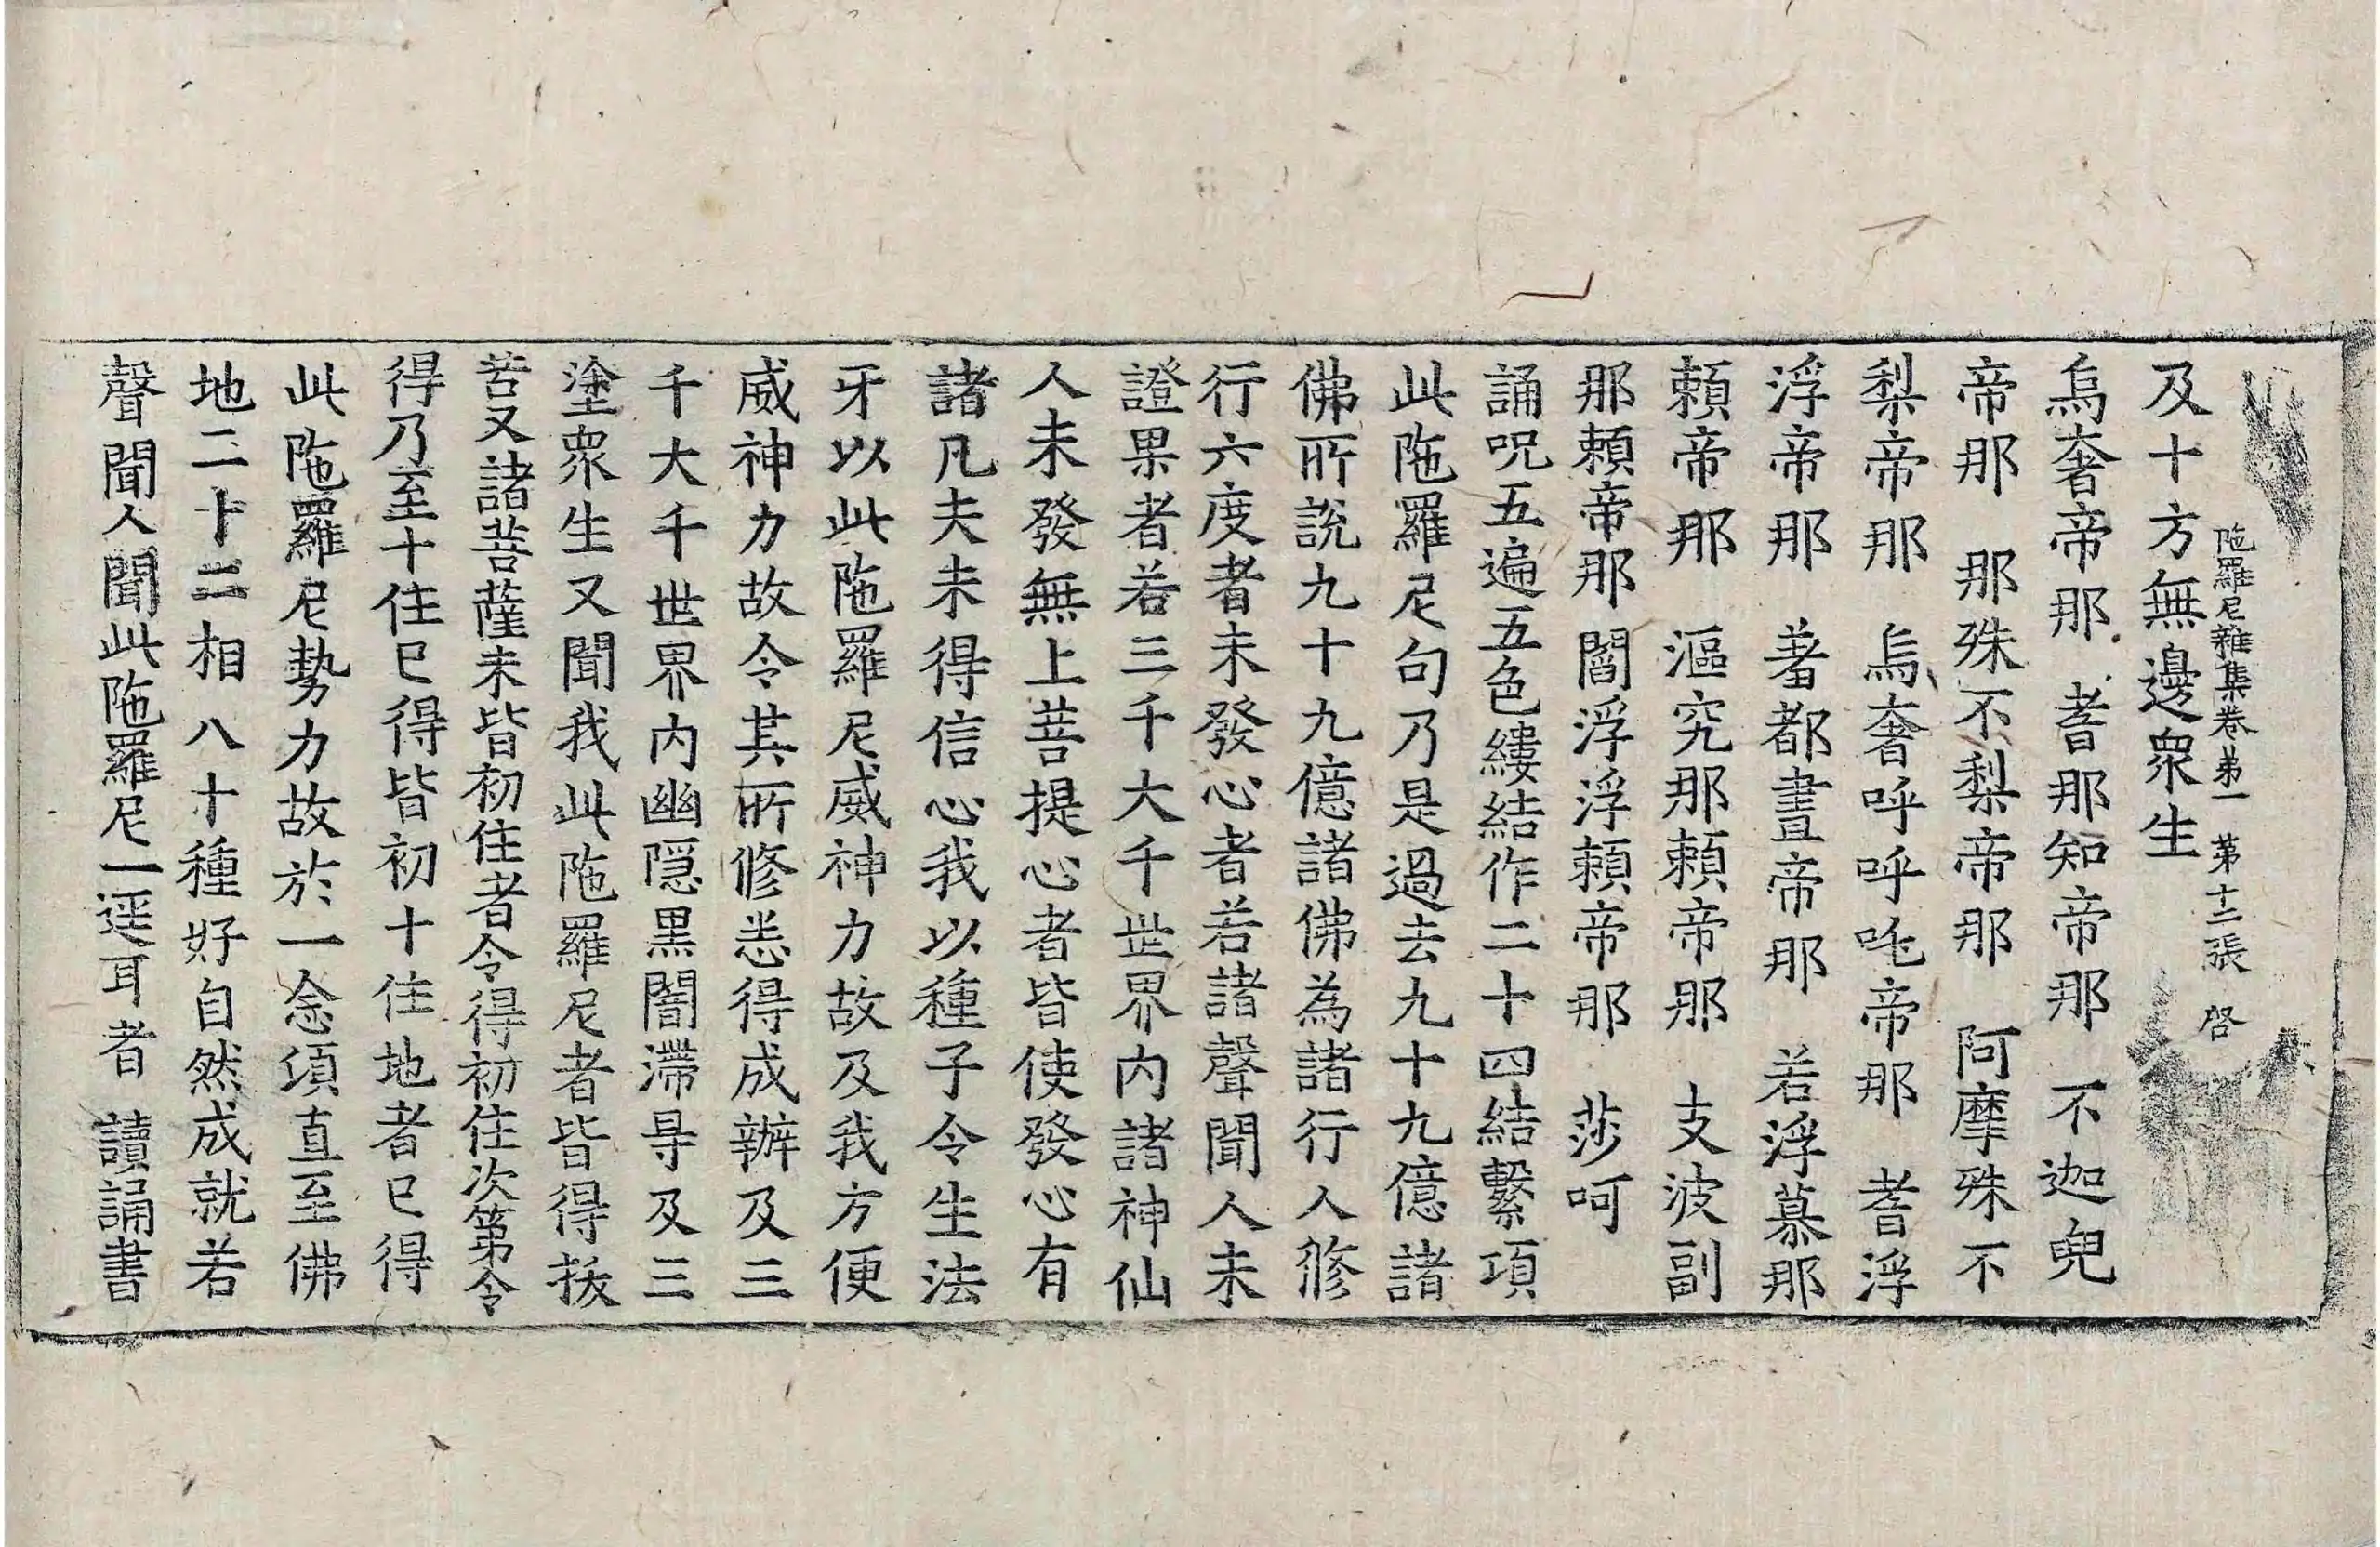 陁羅尼雜集卷苐一 苐十二張 啓
及十方無邊衆生
烏奢帝那 耆那知帝那 不迦兜
帝那 那殊不梨帝那 阿摩殊不
梨帝那 烏奢呼呼吒帝那 耆浮
浮帝那 蓍都晝帝那 若浮慕那
頼帝那 漚究那頼帝那 支波副
那頼帝那 閻浮浮頼帝那 莎呵
誦呪五遍五色縷結作二十四結繫項
此陁羅尼句乃是過去九十九億諸
佛所說九十九億諸佛為諸行人修
行六度者未發心者若諸聲聞人未
證果者若三千大千世界内諸神仙
人未發無上菩提心者皆使發心有
諸凡夫未得信心我以種子令生法
牙以此陁羅尼威神力故及我方便
威神力故令其所修悉得成辦及三
千大千世界内幽隠黒闇滯㝵及三
塗衆生又聞我此陁羅尼者皆得拔
苦又諸菩薩未皆初住者令得初住次第令
得乃至十住已得皆初十住地者已得
此陁羅尼勢力故於一念頃直至佛
地三十二相八十種好自然成就若
聲聞人聞此陁羅尼一逕耳者讀誦書